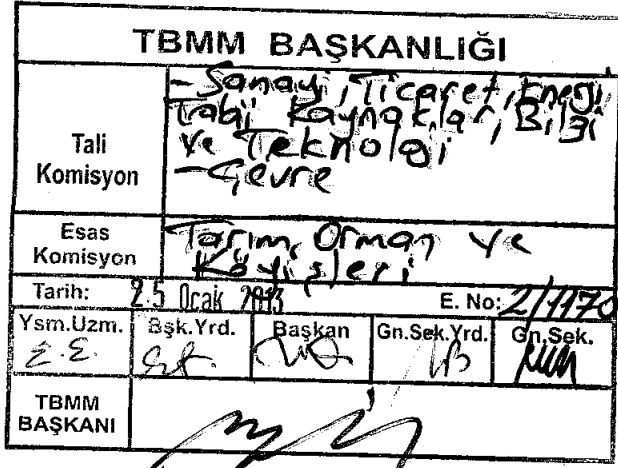 TBMM BAŞKANLIĞI
Tali
Komisyon
- Sanayi, Ticaret, Enerji,
Tabii Kaynaklar, Bilgi
ve Teknoloji
- Çevre
Esas
Komisyon
Tarım, Orman ve
Köyişleri
Tarih: 25 Ocak 2013 E. No: 2/1170
Ysm.Uzm. Bşk.Yrd. Başkan Gn.Sek.Yrd. Gn.Sek.
E.E.
TBMM
BAŞKANI